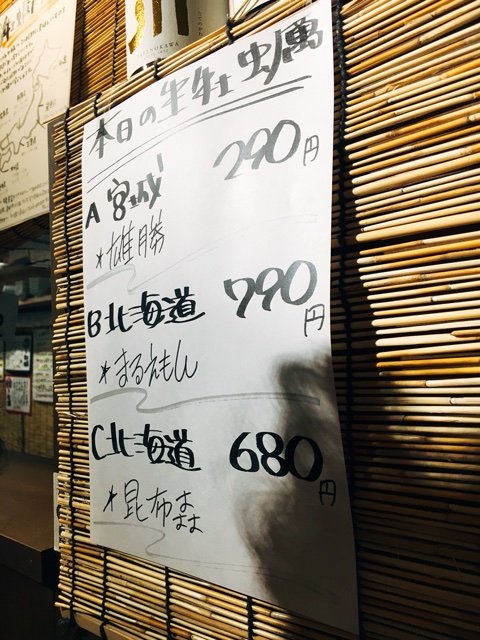 本日の生牡蠣
A 宮城 290円
*雄勝
B 北海道 790円
*まるえもん
C 北海道 680円
*昆布森